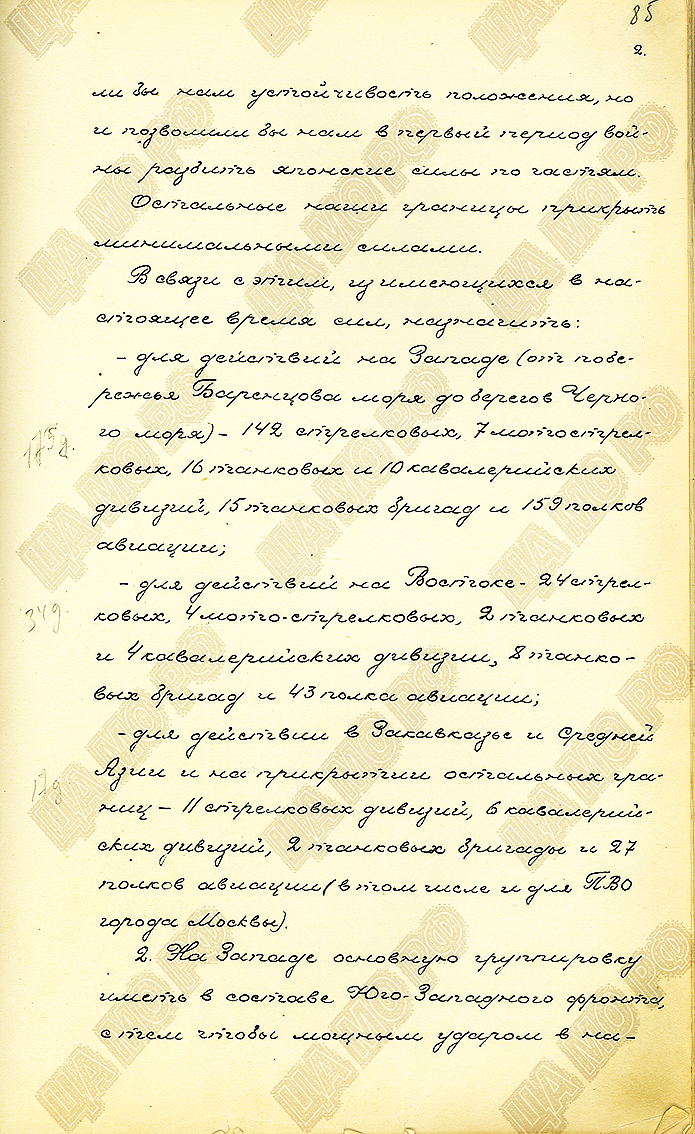 85
2.
ли бы нам устойчивость положения, но
и позволили бы нам в первый период вой-
ны разбить японские силы по частям.
Остальные наши границы прикрыть
минимальными силами.
В связи с этим, из имеющихся в на-
стоящее время сил, назначить:
– для действий на Западе (от побе-
режья Баренцова моря до берегов Черно-
го моря) – 142 стрелковых, 7 мотострел-
175 д.
ковых, 16 танковых и 10 кавалерийских
дивизий, 15 танковых бригад и 159 полков
авиации;
– для действий на Востоке - 24 стрел-
34 д.
ковых, 4 мото-стрелковых, 2 танковых
и 4 кавалерийских дивизии, 8 танко-
вых бригад и 43 полка авиации;
– для действии в Закавказье и Средней
Азии и на прикрытии остальных гра-
17 д
ниц – 11 стрелковых дивизий, 6 кавалерий-
ских дивизий, 2 танковых бригады и 27
полков авиации (в том числе и для ПВО
города Москвы).
2. На Западе основную группировку
иметь в составе Юго-Западного фронта,
с тем чтобы мощным ударом в на-
ЦА МО РФ